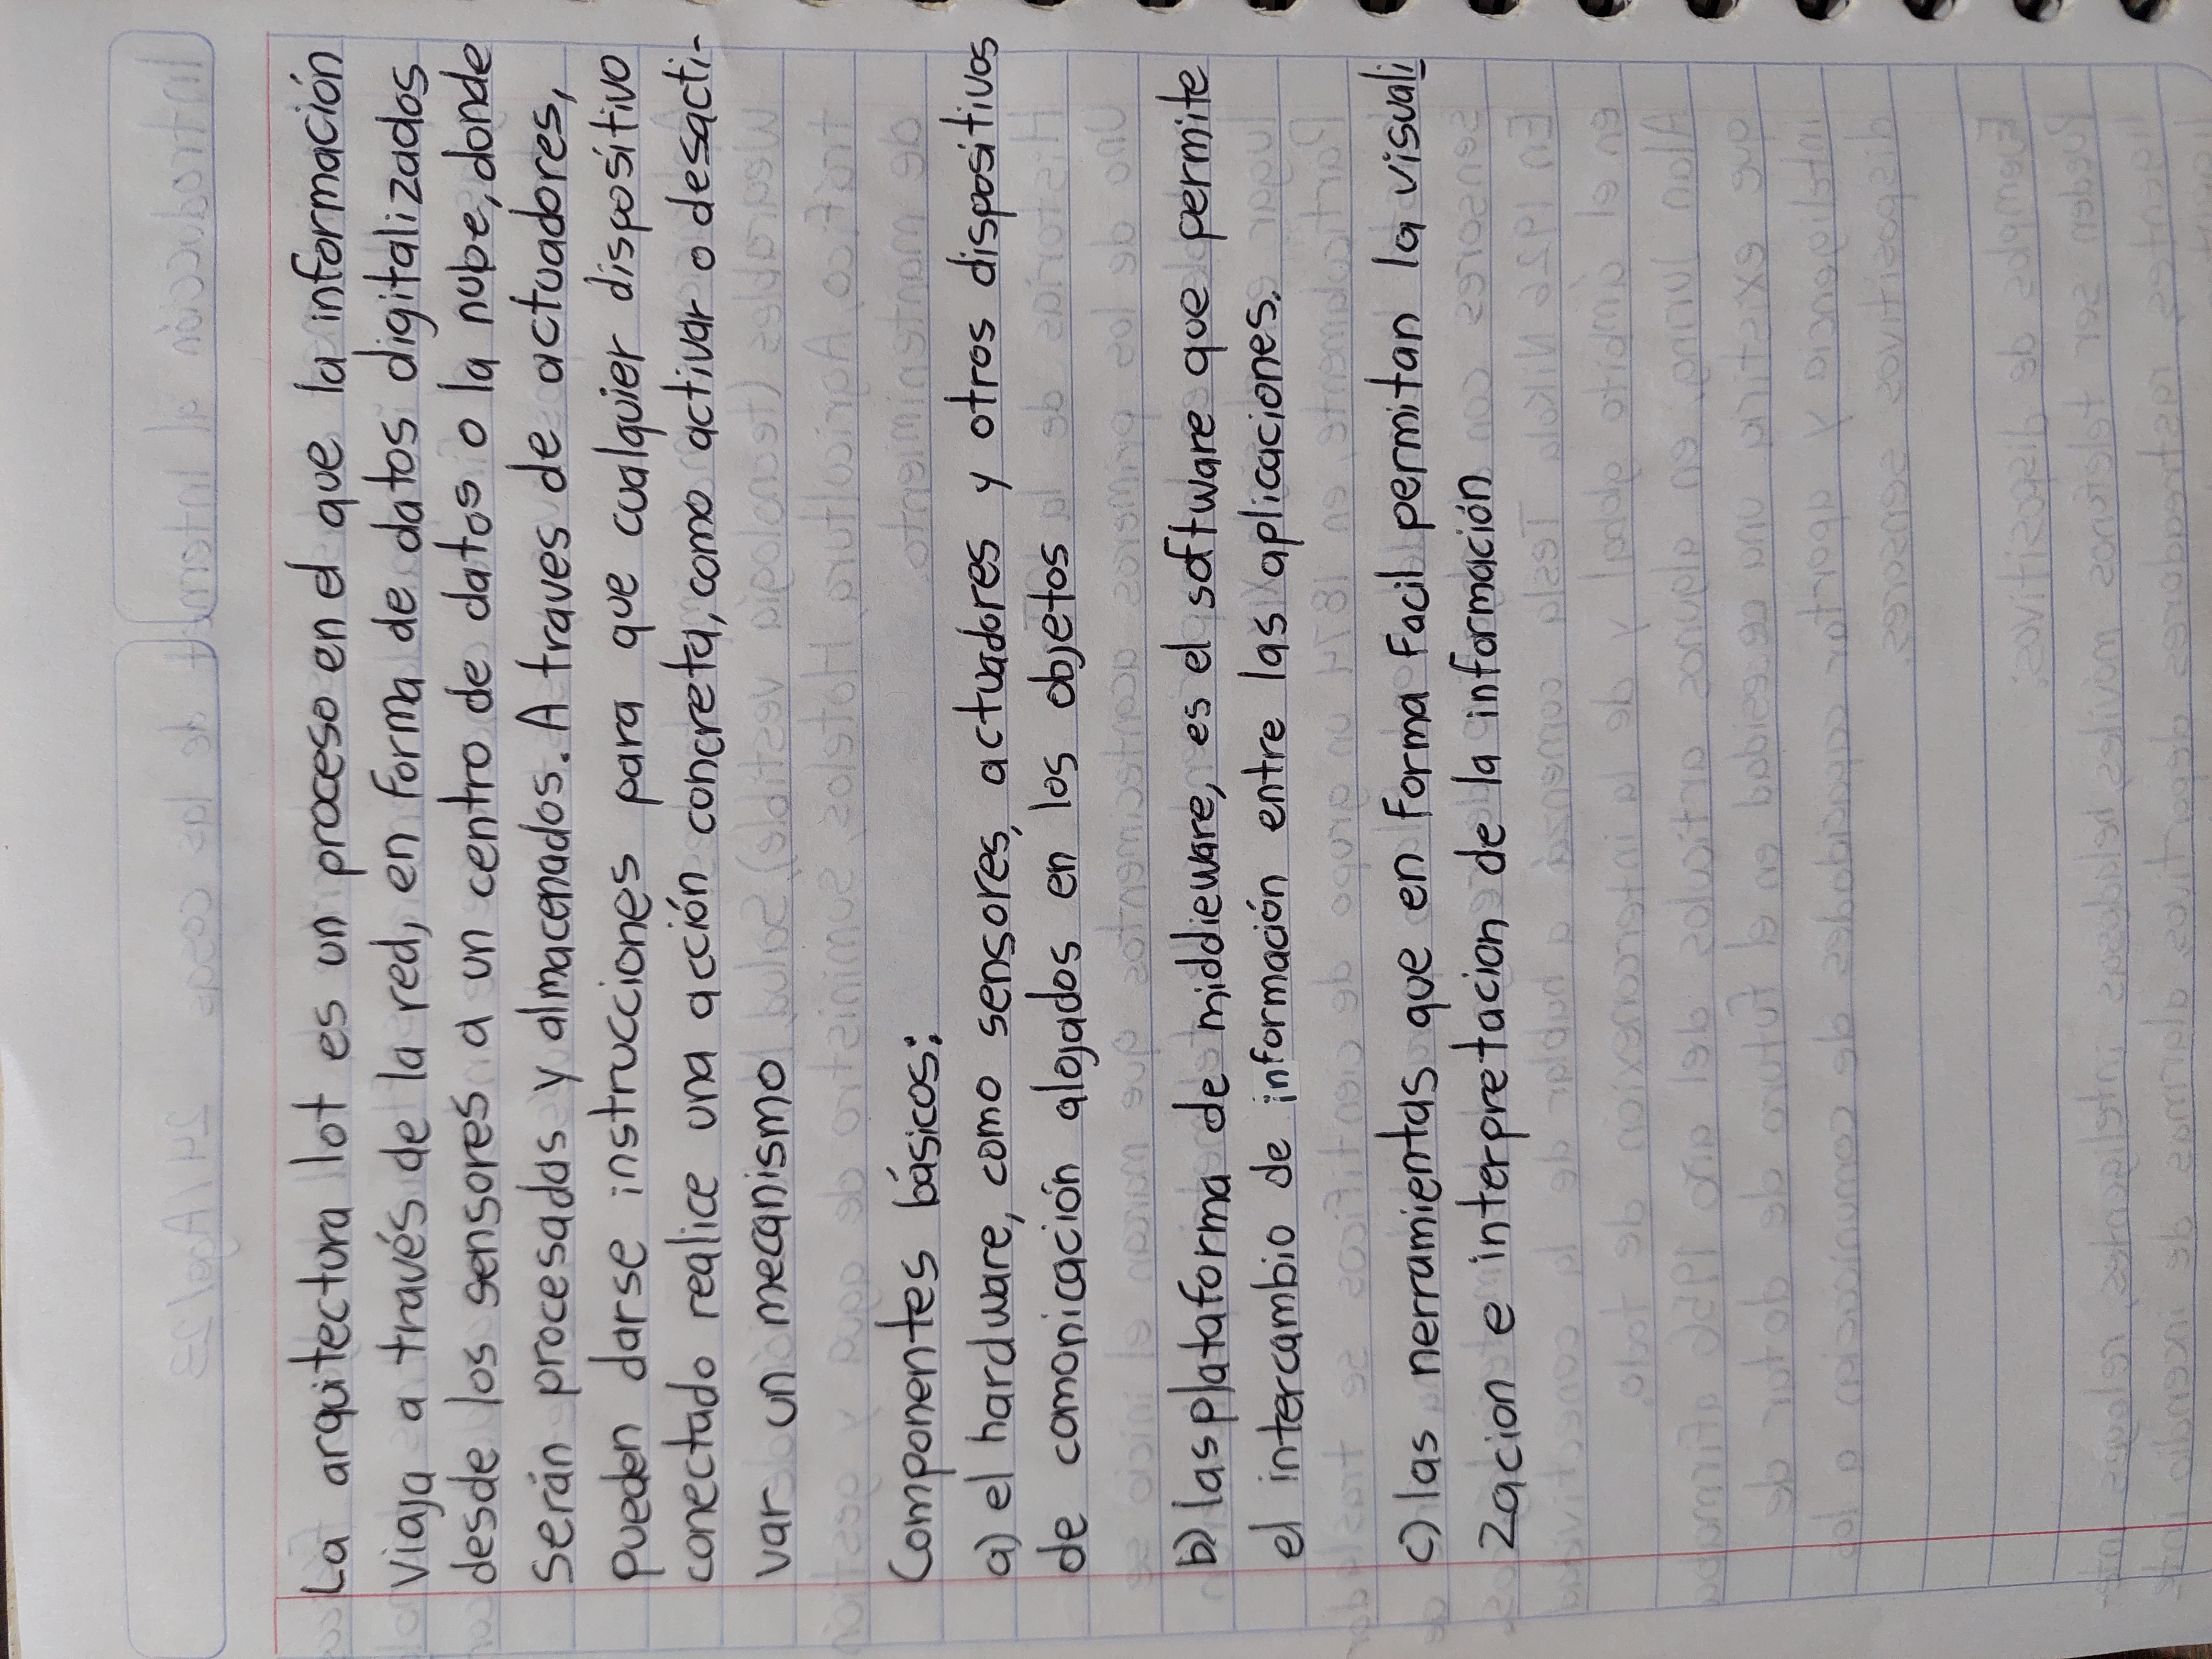 La arquitectura lot es un proceso en el que la información
viaja a través de la red, en forma de datos digitalizados
desde los sensores a un centro de datos o la nube, donde
serán procesados y almacenados. A traves de actuadores,
pueden darse instrucciones para que cualquier dispositivo
conectado realice una acción concreta, como activar o desacti-
var un mecanismo
Componentes básicos:
a) el hardware, como sensores, actuadores y otros dispositivos
de comonicación alojados en los objetos
b) las plataforma de middieware, es el software que permite
el intercambio de información entre las aplicaciones.
c) las nerramientas que en forma facil permitan la visuali
zacion e interpretacion de la información